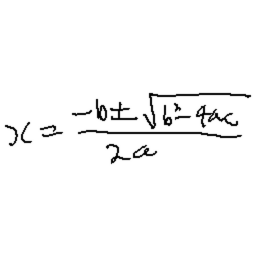 x = \frac{-b \pm \sqrt{b^2 - 4ac}}{2a}